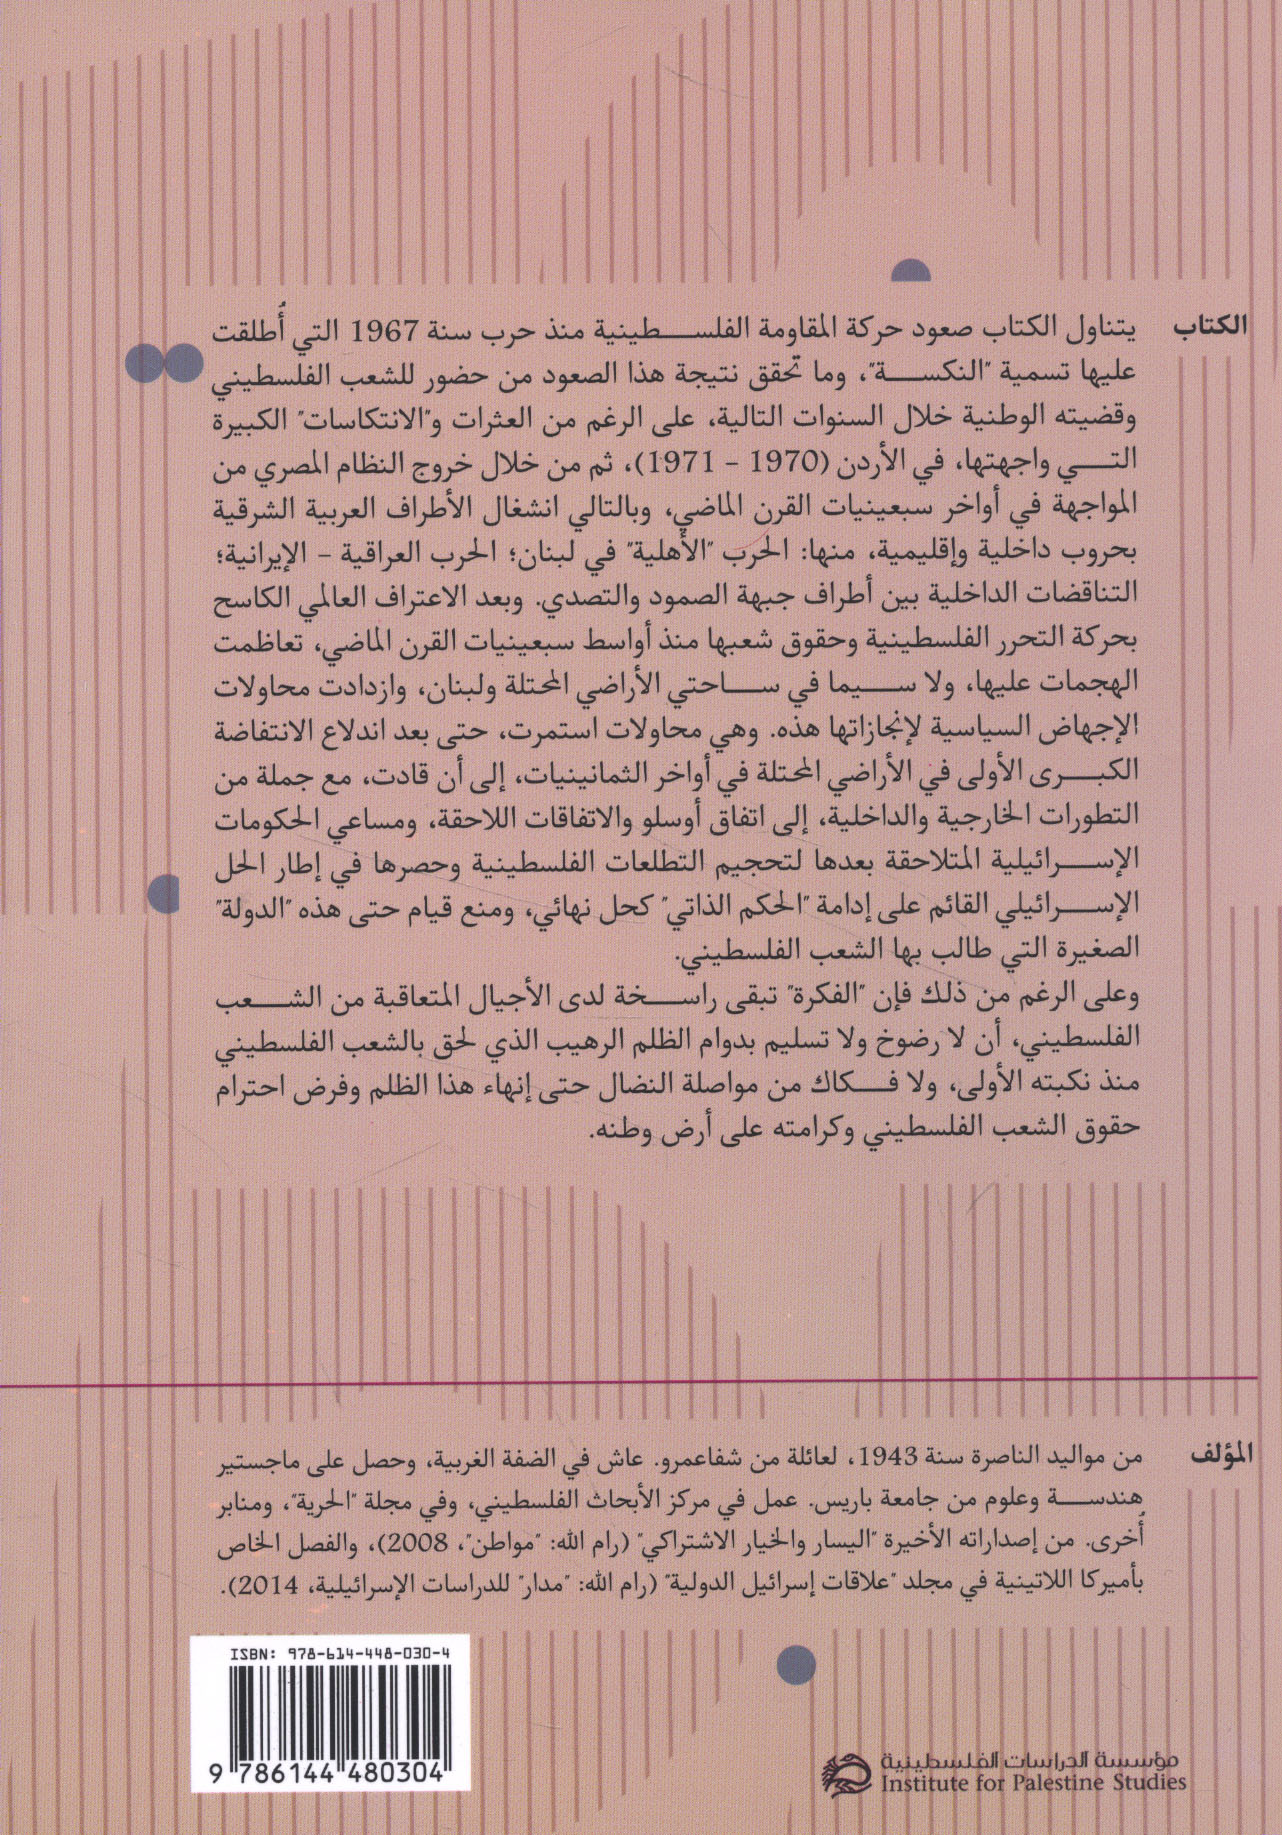 الكتاب
يتناول الكتاب صعود حركة المقاومة الفلسطينية منذ حرب سنة 1967 التي أُطلقت
عليها تسمية "النكسة"، وما تحقق نتيجة هذا الصعود من حضور للشعب الفلسطيني
وقضيته الوطنية خلال السنوات التالية، على الرغم من العثرات و"الانتكاسات" الكبيرة
التي واجهتها، في الأردن (1970 - 1971)، ثم من خلال خروج النظام المصري من
المواجهة في أواخر سبعينيات القرن الماضي، وبالتالي انشغال الأطراف العربية الشرقية
بحروب داخلية وإقليمية، منها: الحرب "الأهلية" في لبنان؛ الحرب العراقية - الإيرانية؛
التناقضات الداخلية بين أطراف جبهة الصمود والتصدي. وبعد الاعتراف العالمي الكاسح
بحركة التحرر الفلسطينية وحقوق شعبها منذ أواسط سبعينيات القرن الماضي، تعاظمت
الهجمات عليها، ولا سيما في ساحتي الأراضي المحتلة ولبنان، وازدادت محاولات
الإجهاض السياسية لإنجازاتها هذه. وهي محاولات استمرت، حتى بعد اندلاع الانتفاضة
الكبرى الأولى في الأراضي المحتلة في أواخر الثمانينيات، إلى أن قادت، مع جملة من
التطورات الخارجية والداخلية، إلى اتفاق أوسلو والاتفاقات اللاحقة، ومساعي الحكومات
الإسرائيلية المتلاحقة بعدها لتحجيم التطلعات الفلسطينية وحصرها في إطار الحل
الإسرائيلي القائم على إدامة "الحكم الذاتي" كحل نهائي، ومنع قيام حتى هذه "الدولة"
الصغيرة التي طالب بها الشعب الفلسطيني.
وعلى الرغم من ذلك فإن "الفكرة" تبقى راسخة لدى الأجيال المتعاقبة من الشعب
الفلسطيني، أن لا رضوخ ولا تسليم بدوام الظلم الرهيب الذي لحق بالشعب الفلسطيني
منذ نكبته الأولى، ولا فكاك من مواصلة النضال حتى إنهاء هذا الظلم وفرض احترام
حقوق الشعب الفلسطيني وكرامته على أرض وطنه.
المؤلف
من مواليد الناصرة سنة 1943، لعائلة من شفاعمرو. عاش في الضفة الغربية، وحصل على ماجستير
هندسة وعلوم من جامعة باريس. عمل في مركز الأبحاث الفلسطيني، وفي مجلة "الحرية"، ومنابر
أُخرى. من إصداراته الأخيرة "اليسار والخيار الاشتراكي" (رام الله: "مواطن"، 2008)، والفصل الخاص
بأميركا اللاتينية في مجلد "علاقات إسرائيل الدولية" (رام الله: "مدار" للدراسات الإسرائيلية، 2014).
ISBN: 978-614-448-030-4
9 786144 480304
مؤسسة الدراسات الفلسطينية
Institute for Palestine Studies